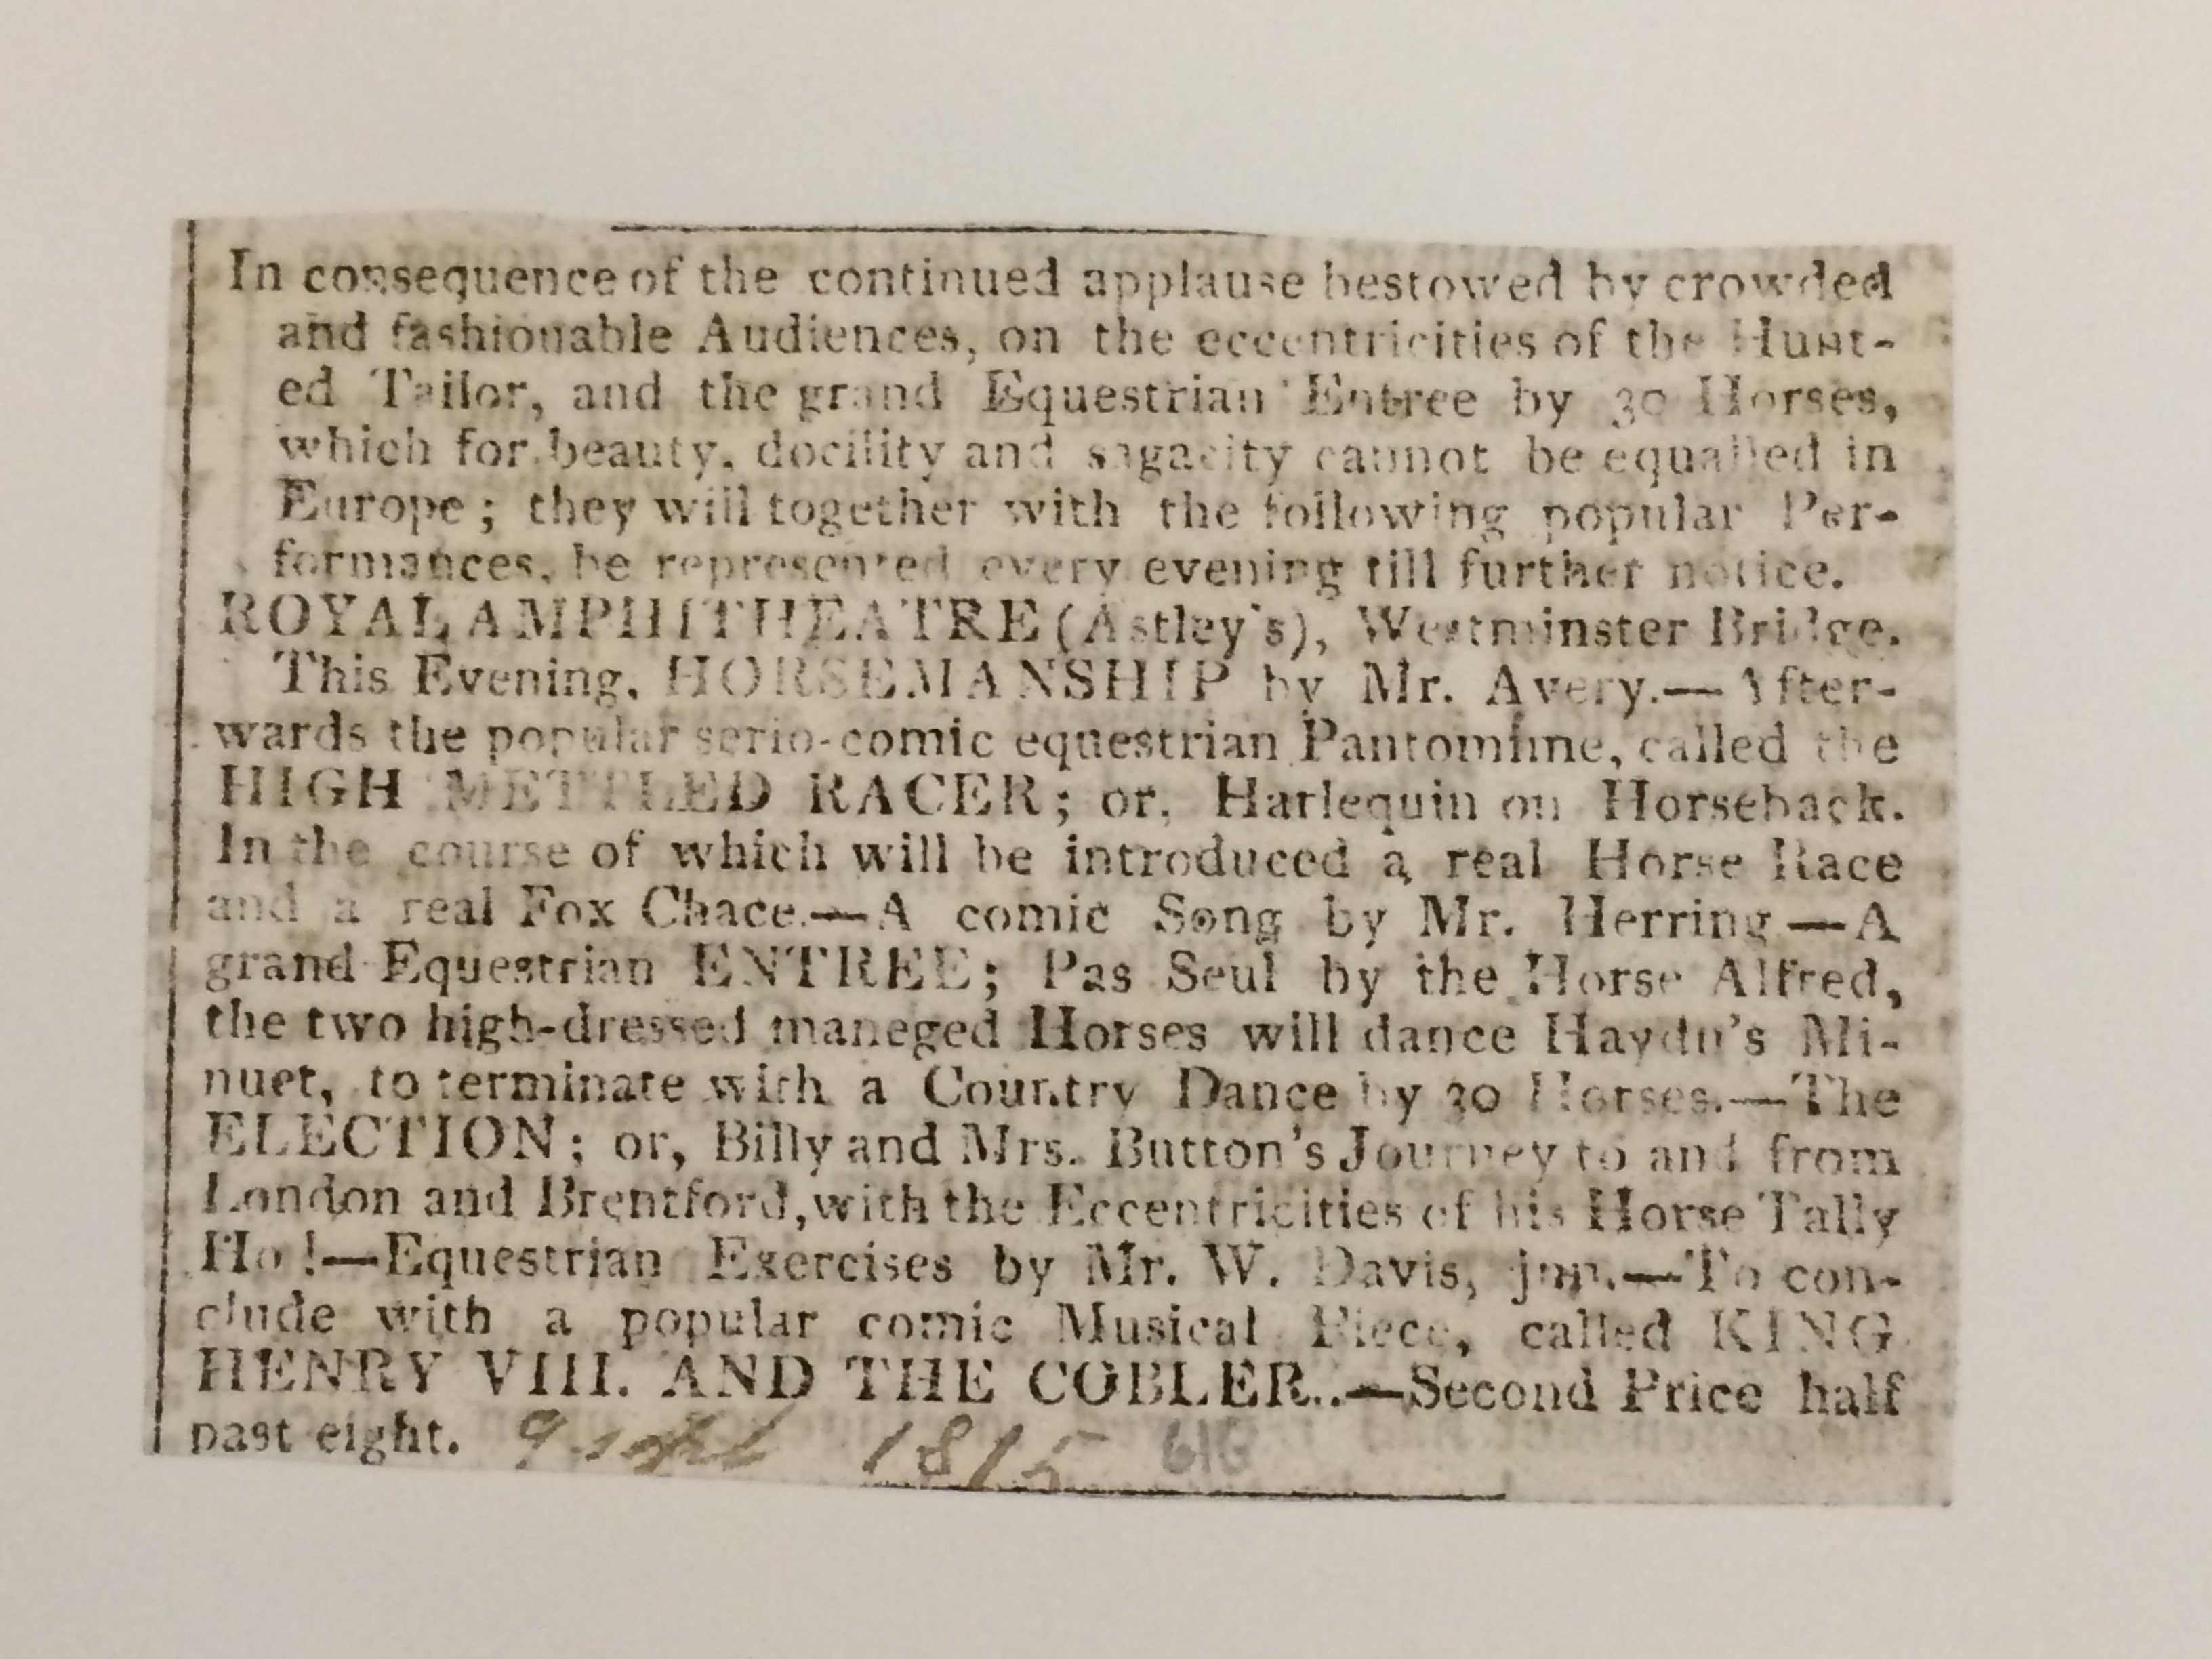 In consequence of the continued applause bestowed by crowded
and fashionable Audiences, on the eccentricities of the Hunt-
ed Tailor, and the grand Equestrian Entree by 30 Horses,
which for beauty, docility and sagacity cannot be equalled in
Europe; they will together with the following popular Per-
formances, be represented every evening till further notice.
ROYAL AMPHITHEATRE (Astley's), Westminster Bridge.
This Evening, HORSEMANSHIP by Mr. Avery.—After-
wards the popular serio-comic equestrian Pantomime, called the
HIGH METTLED RACER; or, Harlequin on Horseback.
In the course of which will be introduced a real Horse Race
and a real Fox Chace.—A comic Song by Mr. Herring—A
grand Equestrian ENTREE; Pas Seul by the Horse Alfred,
the two high-dressed maneged Horses will dance Haydn's Mi-
nuet, to terminate with a Country Dance by 30 Horses.—The
ELECTION; or, Billy and Mrs. Button's Journey to and from
London and Brentford, with the Eccentricities of his Horse Tally
Ho!—Equestrian Exercises by Mr. W. Davis, jun.—To con-
clude with a popular comic Musical Piece, called KING
HENRY VIII. AND THE COBLER..—Second Price half
past eight. 9 sept 1815